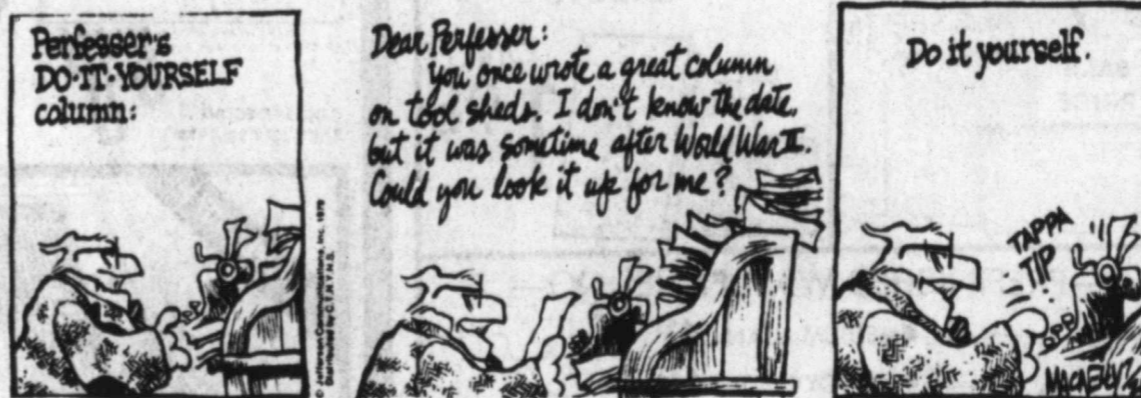 Perfesser's
DO-IT-YOURSELF
column:
© Jefferson Communications, Inc. 1979
Distributed by C.T.N.Y.N.S.
Dear Perfesser:
you once wrote a great column
on tool sheds. I don't know the date,
but it was sometime after World War II.
Could you look it up for me?
Do it yourself.
TAPPA
TIP
MACNELLY